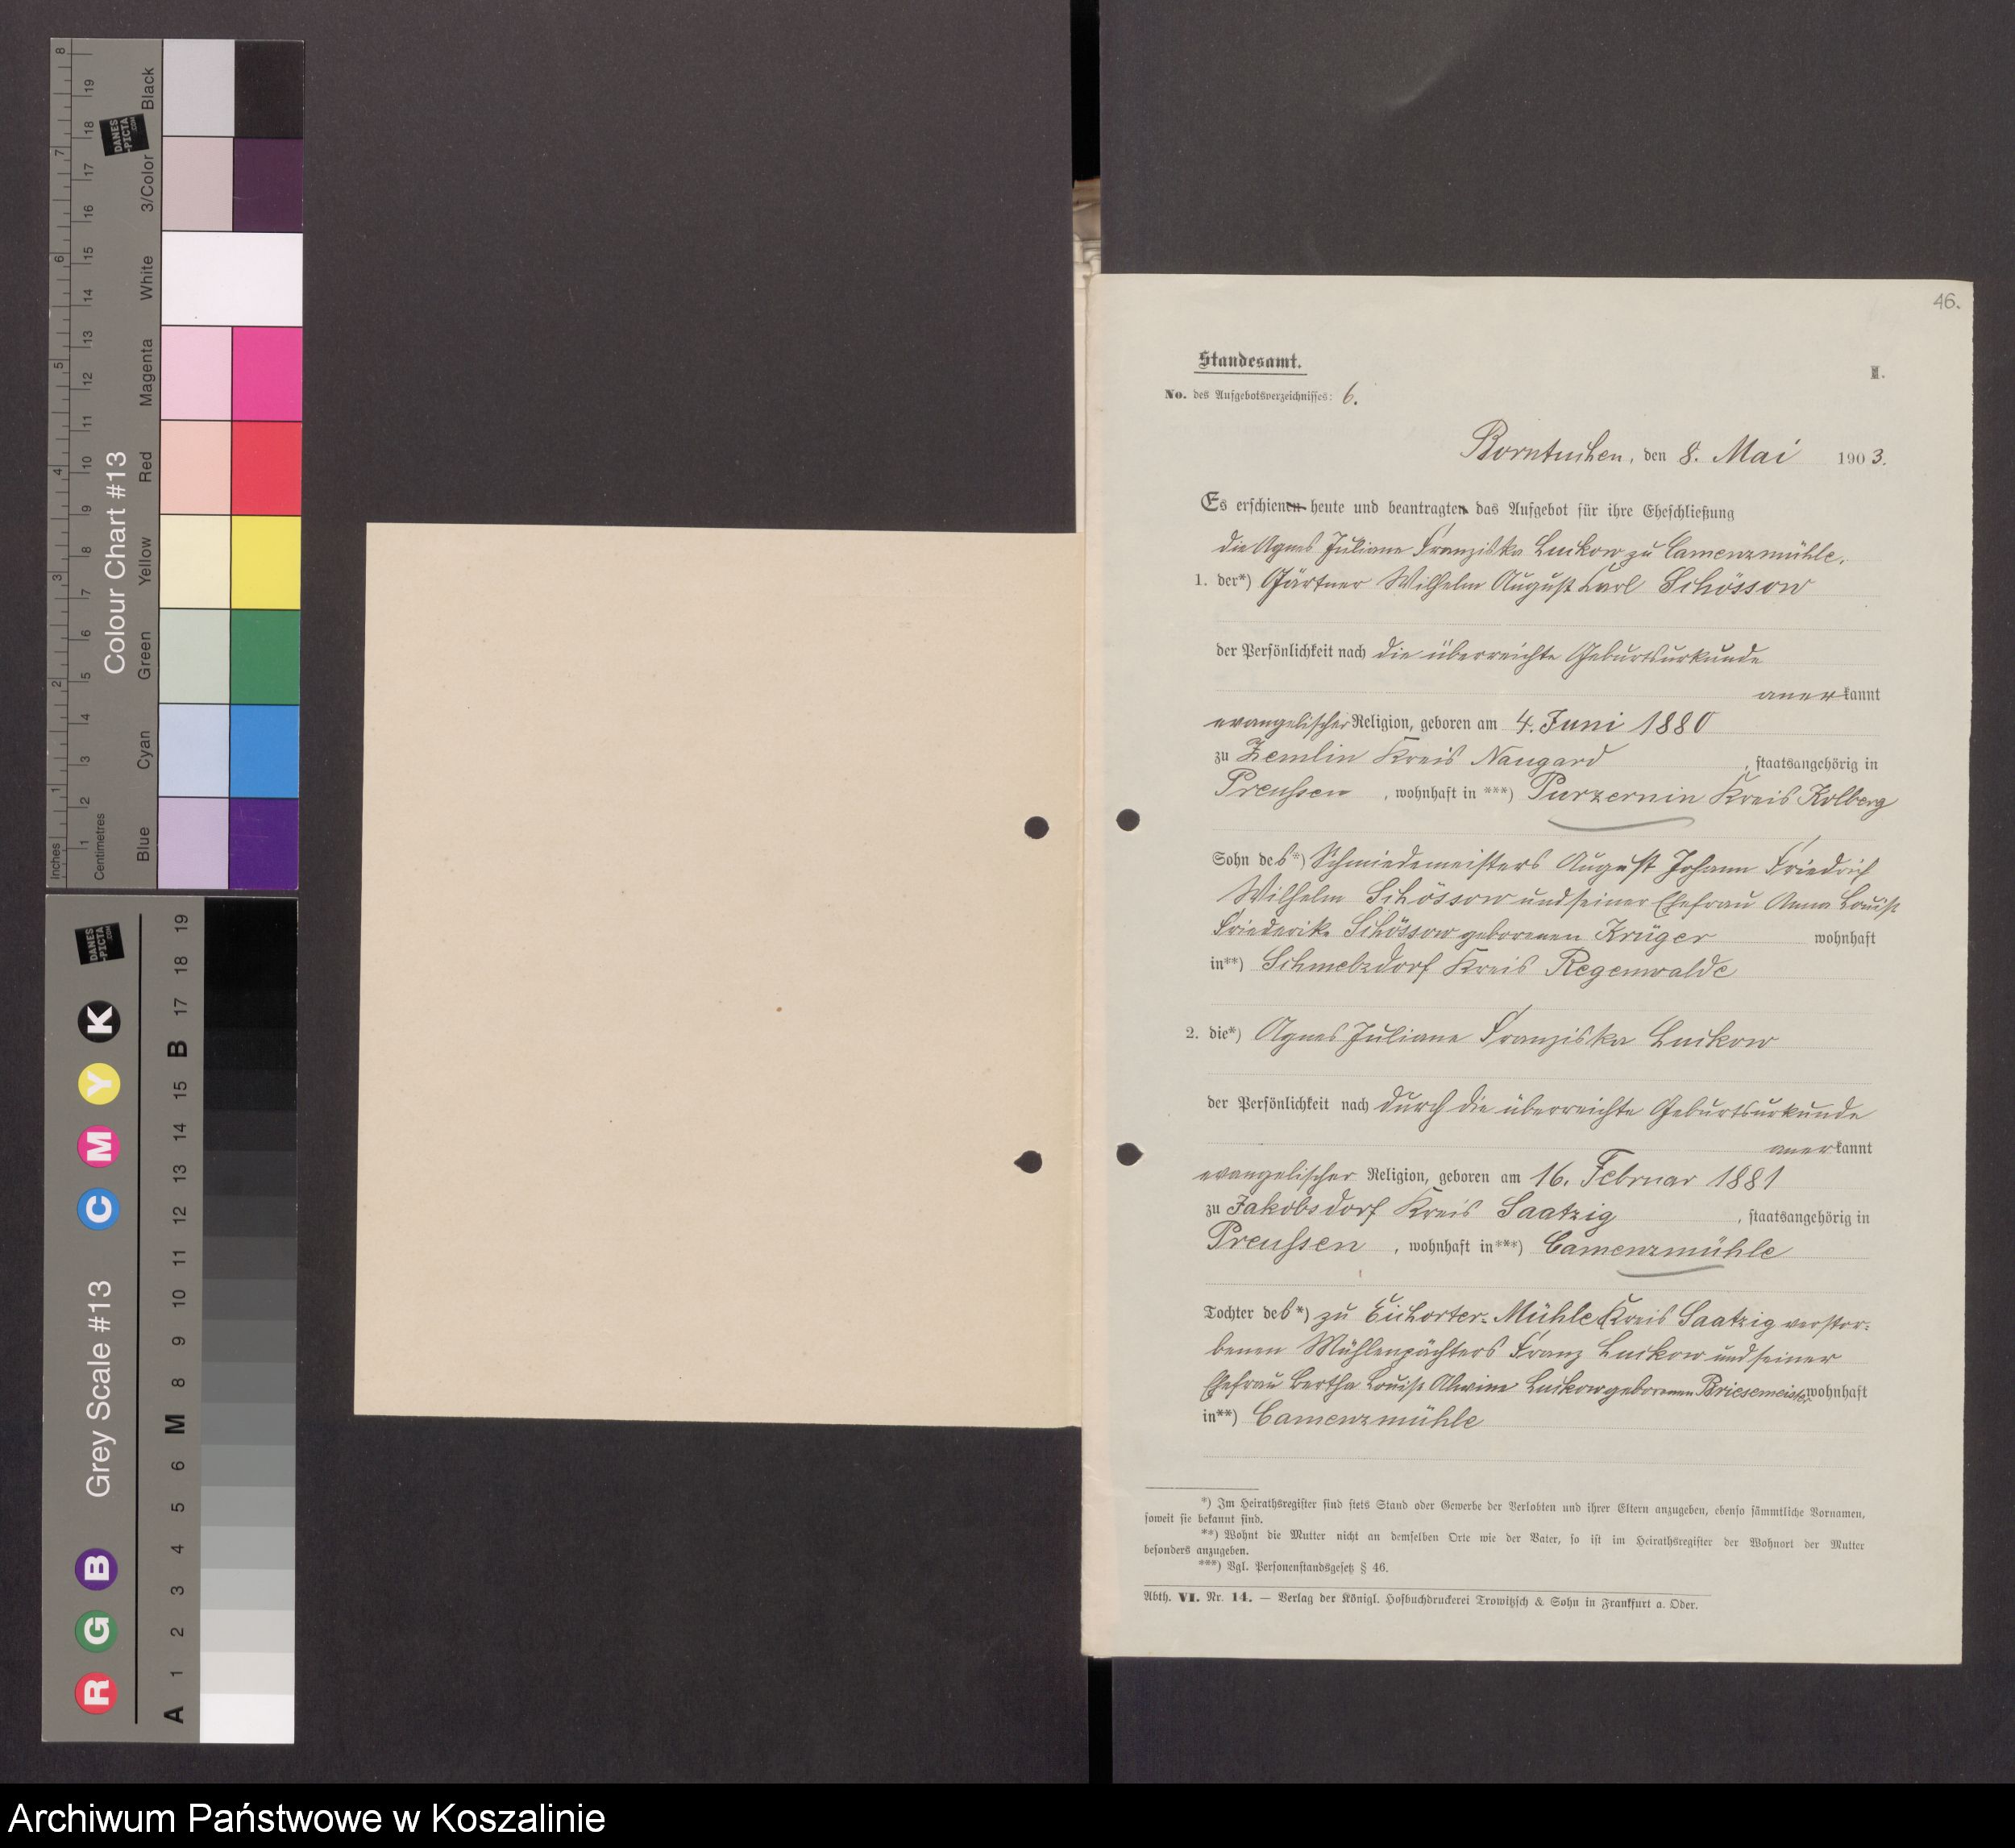 46.
Standesamt.
II.
No. des Aufgebotsverzeichnisses: 6.
Borntuchen, den 8. Mai 1903.
Es erschienen heute und beantragten das Aufgebot für ihre Eheschließung
die Agnes Juliane Franziska Luckow zu Camenzmühle.
1. der*) Gärtner Wilhelm August Carl Schössow
der Persönlichkeit nach die überreichte Geburtsurkunde
anerkannt
evangelischer Religion, geboren am 4. Juni 1880
zu Zemlin Kreis Naugard, staatsangehörig in
Preussen, wohnhaft in ***) Purzernin Kreis Kolberg
Sohn des*) Schmiedemeisters August Johann Friedrich
Wilhelm Schössow und seiner Ehefrau Anna Louise
Friederike Schössow geborenen Krüger wohnhaft
in**) Schmelzdorf Kreis Regenwalde
2. die*) Agnes Juliane Franziska Luckow
der Persönlichkeit nach durch die überreichte Geburtsurkunde
anerkannt
evangelischer Religion, geboren am 16. Februar 1881
zu Jakobsdorf Kreis Saatzig, staatsangehörig in
Preussen, wohnhaft in***) Camenzmühle
Tochter des*) zu Eichorter-Mühle Kreis Saatzig verstor-
benen Mühlenpächters Franz Luckow und seiner
Ehefrau Bertha Louise Alwine Luckow geborenen Briesemeister wohnhaft
in**) Camenzmühle
*) Im Heirathsregister sind stets Stand oder Gewerbe der Verlobten und ihrer Eltern anzugeben, ebenso sämmtliche Vornamen,
soweit sie bekannt sind.
**) Wohnt die Mutter nicht an demselben Orte wie der Vater, so ist im Heirathsregister der Wohnort der Mutter
besonders anzugeben.
***) Vgl. Personenstandsgesetz § 46.
Abth. VI. Nr. 14. — Verlag der Königl. Hofbuchdruckerei Trowitzsch & Sohn in Frankfurt a. Oder.
Colour Chart #13
Inches
Centimetres
1 2 3 4 5 6 7 8
1 2 3 4 5 6 7 8 9 10 11 12 13 14 15 16 17 18 19
Blue Cyan Green Yellow Red Magenta White 3/Color Black
DANES-PICTA.COM
Grey Scale #13
DANES-PICTA.COM
R G B C M Y K
A 1 2 3 4 5 6 M 8 9 10 11 12 13 14 15 B 17 18 19
Archiwum Państwowe w Koszalinie